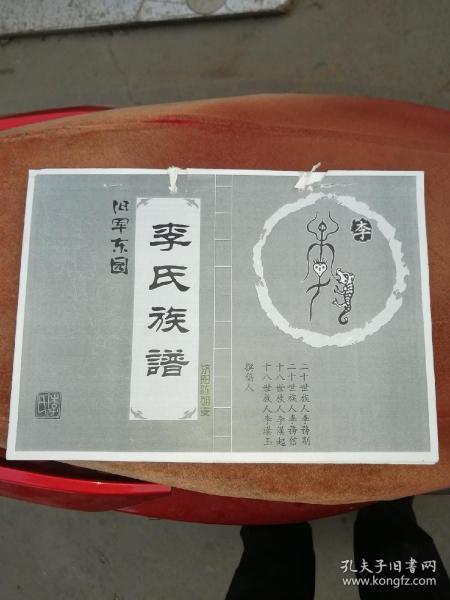 旧军东园
李氏族譜
李氏
李
二十世族人李
二十世族人李
十八世族人李漢起
十八世族人李漢玉
撰稿人
孔夫子旧书网
www.kongfz.com